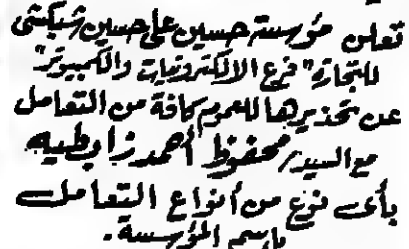 تعلن مؤسسة حسين علي حسين شبكشي
للتجارة "فرع الالكترونيات والكمبيوتر"
عن تحذيرها للعموم كافة من التعامل
مع السيد/ محفوظ أحمد زابطيه
بأى نوع من أنواع التعامل
باسم المؤسسة.